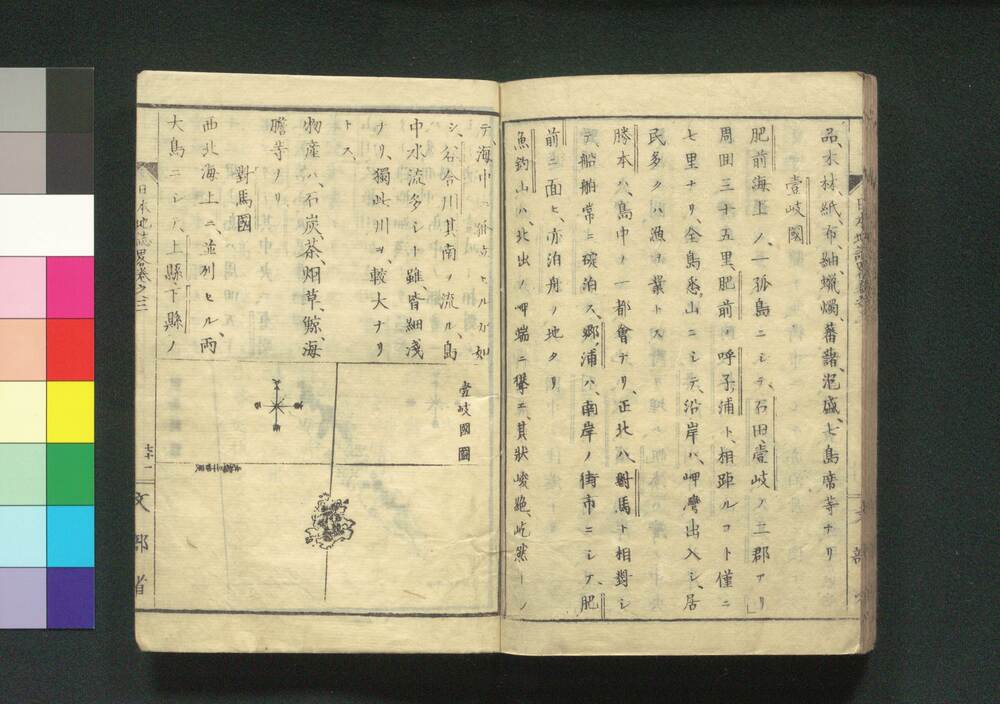 品、木材、紙、布、紬、蠟燭、蕃藷、泡盛、七島席等ナリ
壹岐國
肥前海上ノ、一孤島ニシテ、石田、壹岐ノ二郡アリ
周囲三十五里、肥前ノ呼子浦ト、相距ルコト僅ニ
七里ナリ、全島悉山ニシテ、沿岸ハ岬灣出入シ、居
民多クハ漁ヲ業トス
勝本ハ、島中ノ一都會ナリ、正北ハ對馬ト相對シ
テ、船舶常ニ碇泊ス、郷浦ハ、南岸ノ街市ニシテ、肥
前ニ面ヒ、亦泊舟ノ地タリ
魚釣山ハ、北出ノ岬端ニ擧エ、其狀峻絶、屹然トノ
テ、海中ニ孤立セルガ如
シ、谷合川其南ノ流ル、島
中水流多シト雖、皆細淺
ナリ、獨此川ヲ、較大ナリ
トス、
物産ハ、石炭、茶、烟草、鯨、海
膽等ナリ
對馬國
西北海上ニ、並列セル、兩
大島ニシテ、上縣下縣ノ
壹岐國圖
日本地誌畧卷之三
七十一
文部省